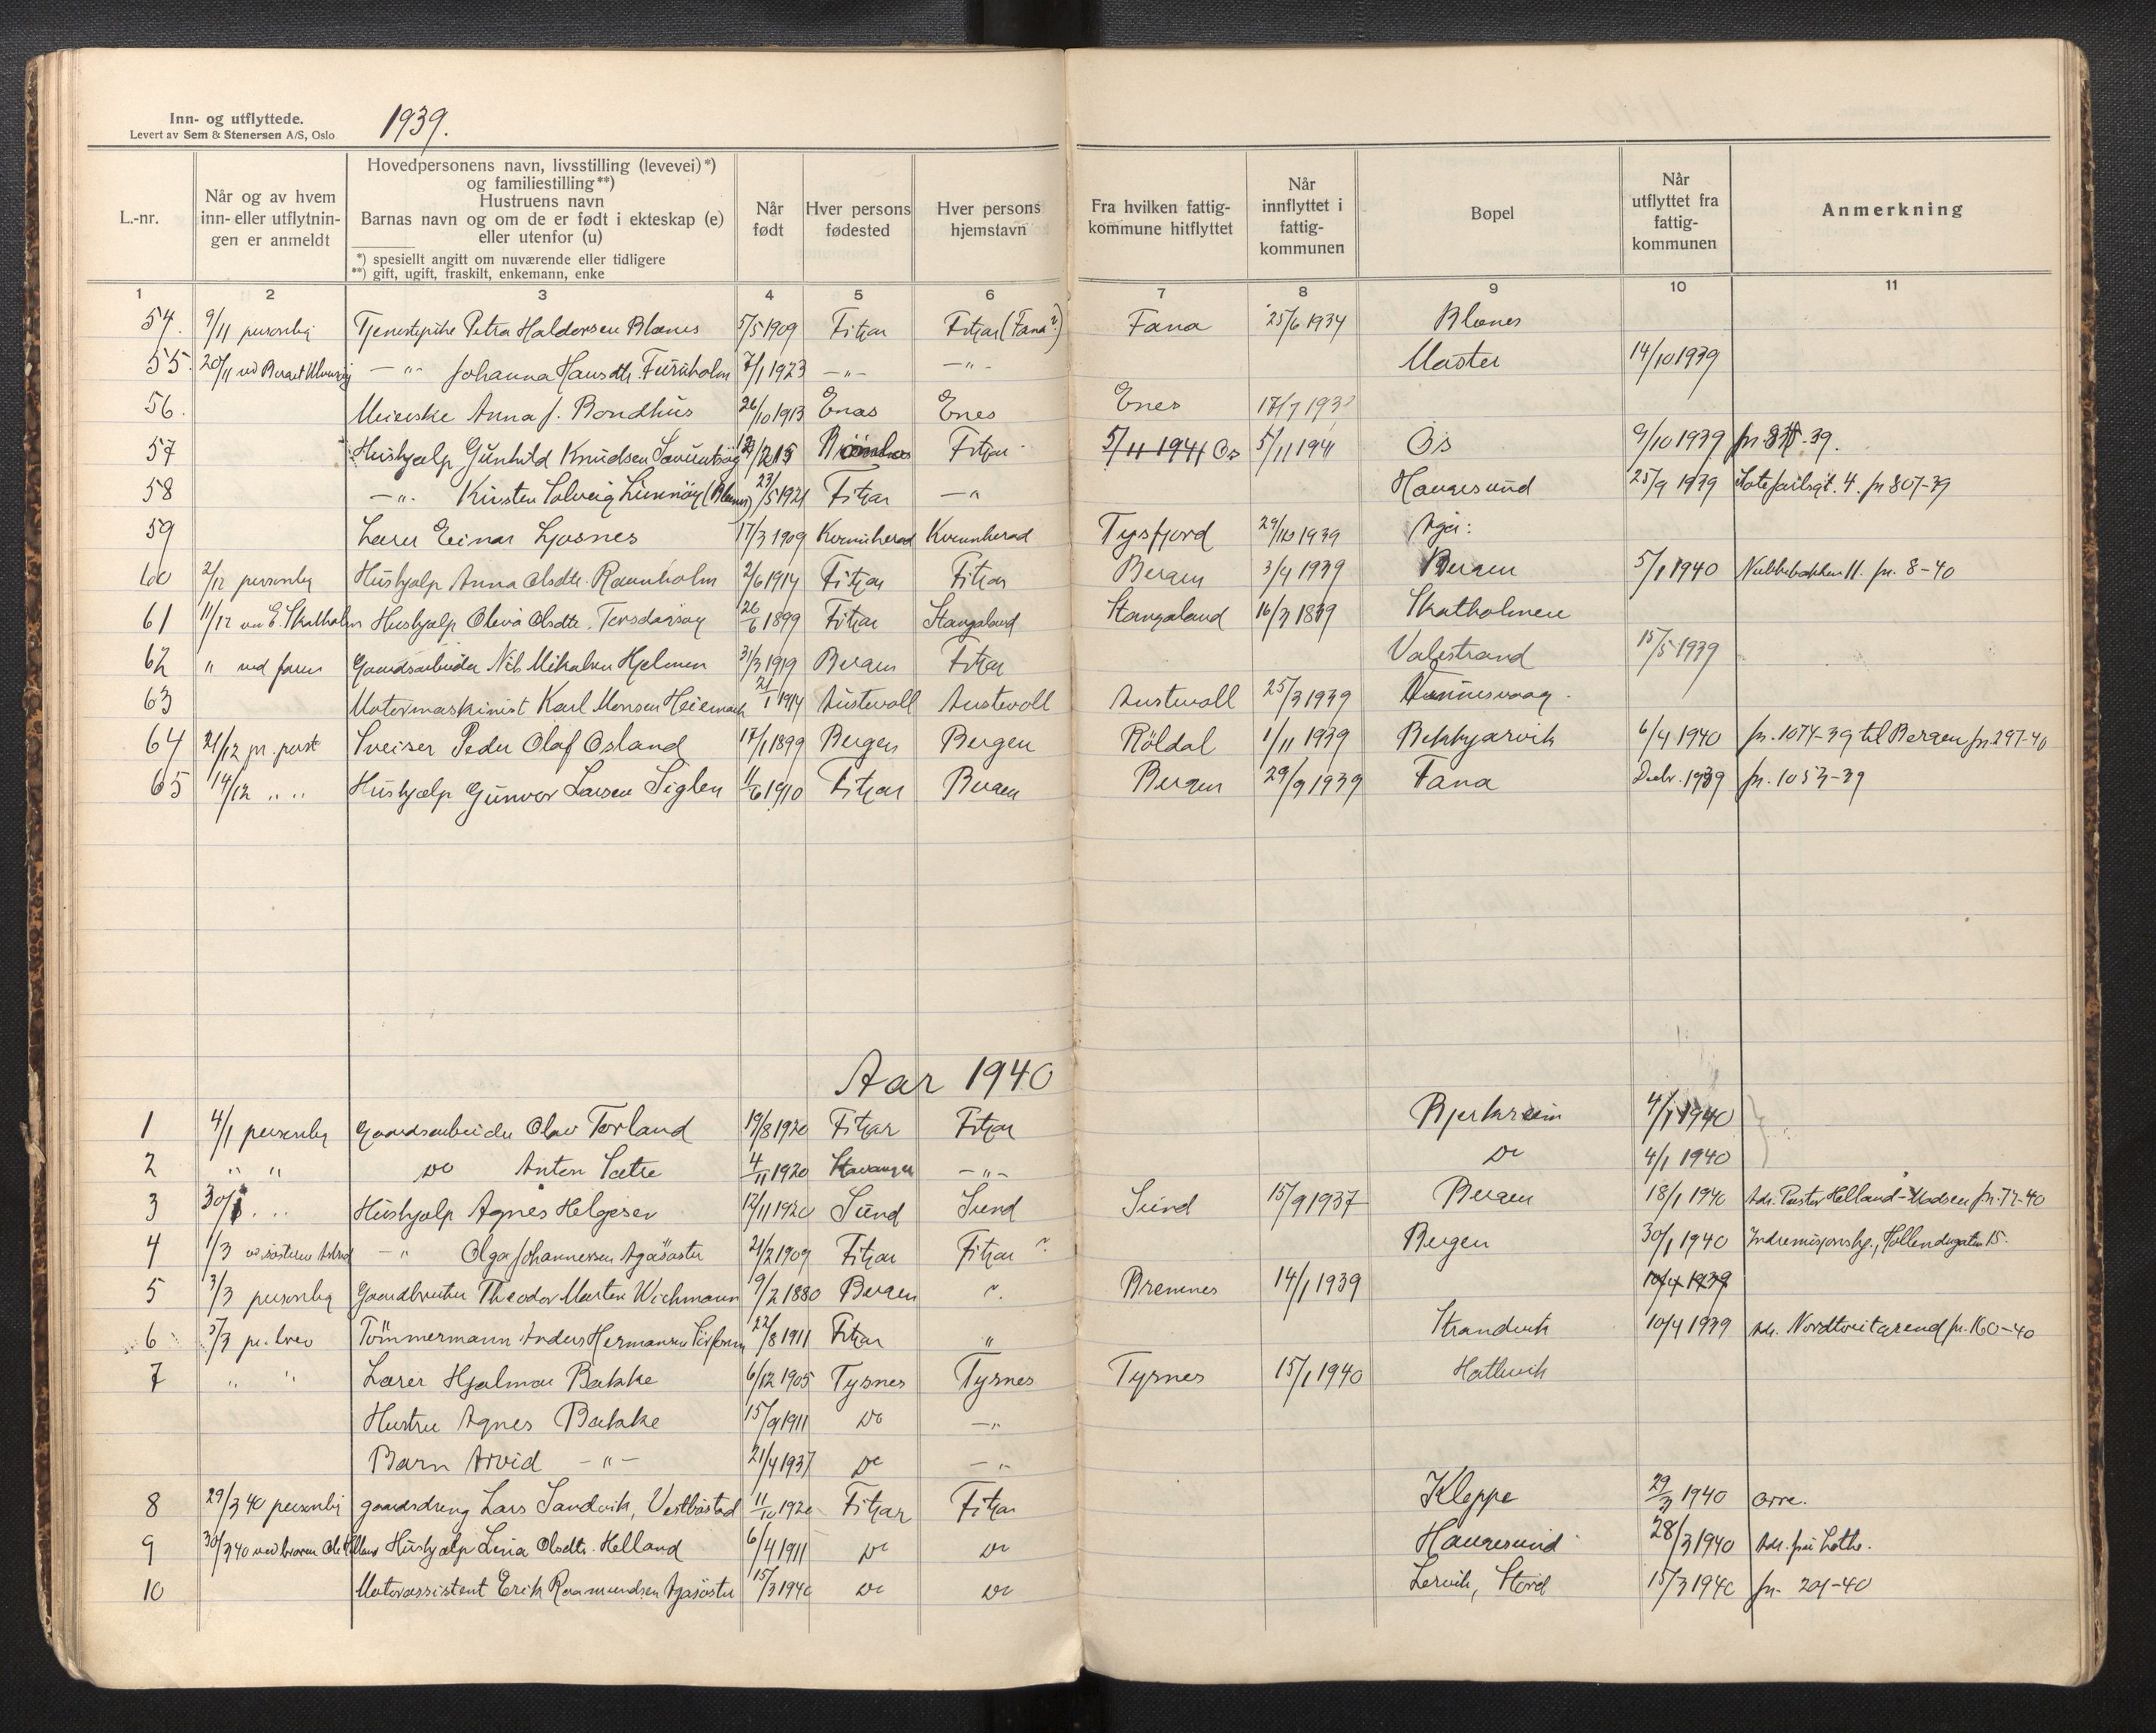 Inn- og utflyttede.
Levert av Sem & Stenersen A/S, Oslo
1939.
L.-nr.
Når og av hvem inn- eller utflytnin- gen er anmeldt
Hovedpersonens navn, livsstilling (levevei)*)
og familiestilling**)
Hustruens navn
Barnas navn og om de er født i ekteskap (e)
eller utenfor (u)
*) spesielt angitt om nuværende eller tidligere
**) gift, ugift, fraskilt, enkemann, enke
Når født
Hver persons fødested
Hver persons hjemstavn
Fra hvilken fattig- kommune hitflyttet
Når innflyttet i fattig- kommunen
Bopel
Når utflyttet fra fattig- kommunen
Anmerkning
1 2 3 4 5 6 7 8 9 10 11
54. 9/11 personlig Tjenestepike Petra Haldorsen Blænes 5/5 1909 Fitjar Fitjar (Fana?) Fana 25/6 1934 Blænes
55. 20/11 ved -"- Johanna Hansdtr. Furuholm 7/1 1923 -"- -"- Møster 14/10 1939
56. Meierske Anna J. Bondhus 26/10 1913 Enes Enes Enes
57 Hushjælp Gunhild Knudsen Fitjar 5/11 1941 Os 5/11 1941 Os 9/10 1939
58 -"- Kirsten Solveig 23/5 1921 Fitjar -" Haugesund 25/9 1939 4. jn 807-39
59 Lærer Einar Ljosnes 17/3 1909 Kvinnherad Kvinnherad Tysfjord 29/10 1939
60 2/12 personlig Hushjælp Anna Olsdtr. Raunholm 2/6 1914 Fitjar Fitjar Bergen 3/9 1939 Bergen 5/1 1940 11. jn. 8-40
61 11/12 ved E. Skatholm Hushjælp Oleva Olsdtr. 26/6 1899 Fitjar Stangaland Stangaland 16/3 1839 Skatholmen
62 " ved faren Gaardsarbeider Nils Mikalsen Hjelmen 31/3 1919 Bergen Fitjar Valestrand 15/5 1939
63 Motormaskinist Karl Monsen 21/1 1914 Austevoll Austevoll Austevoll 25/3 1939
64 21/12 pr. post Sveiser Peder Olaf Osland 17/1 1899 Bergen Bergen Röldal 1/11 1939 Bekkjarvik 6/4 1940 jn. 1074-39 til Bergen jn. 297-40
65 14/12 " " Hushjælp Gunvor Larsen Siglen 11/6 1910 Fitjar Bergen Bergen 29/9 1939 Fana Decbr. 1939 jn. 1053-39
Aar 1940
1 4/1 personlig Gaardsarbeider Olav Torland 19/8 1920 Fitjar Fitjar Bjerkreim 4/1 1940
2 " " Do Anton Sætre 4/11 1920 Stavanger -"- Do 4/1 1940
3 30/1 " " Hushjælp Agnes Helgesen 12/11 1920 Sund Sund Sund 15/9 1937 Bergen 18/1 1940 Adr. Pastor Helland-Madsen jn. 72-40
4 1/3 ved søsteren Astrid -" Olga Johannessen Agasöster 21/2 1909 Fitjar Fitjar Bergen 30/1 1940 Indremisjonshj., Hollendergaten 15.
5 3/3 personlig Gaardbruker Theodor Marten Wichmann 9/2 1880 Bergen ". Bremnes 14/1 1939 10/4 1939
6 5/3 pr. brev Tömmermann Anders Hermansen 22/8 1911 Fitjar " Strandvik 10/4 1939 Adr. Nordtveitgrend jn. 160-40
7 " " Lærer Hjalmar Bakke 6/12 1905 Tysnes Tysnes Tysnes 15/1 1940 Hatlevik
Hustru Agnes Bakke 15/9 1911 Do -"
Barn Arvid -"- 21/4 1937 Do -"
8 29/3 40 personlig gaardsdreng Lars Sandvik, Vestbøstad 11/10 1920 Fitjar Fitjar Kleppe 29/3 1940 Orre.
9 30/3 40 ved broren Ole Helland Hushjælp Lina Olsdtr. Helland 6/4 1911 Do Do Haugesund 28/3 1940 Adr. frú Lothe.
10 Motorassistent Erik Rasmundsen Agasöster 15/3 1940 Do Do Lervik, Stord 15/3 1940 jn. 201-40